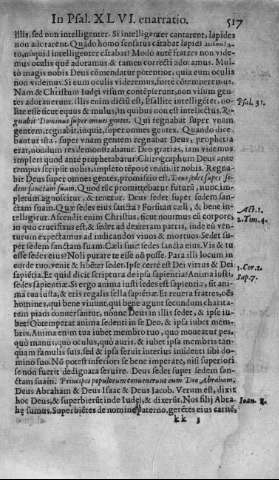 In Psal. XLVI. enarratio. 517
illis, sed non intelligenter. Si intelligenter cantarent, lapides
non adorarent. Quãdo homo sensatus cãtabat lapidi
insensato, nunquid intelligenter cãtabat? Modò autẽ fratres non vide-
mus oculis quẽ adoramus & tamen correcti adoramus. Mul-
tò magis nobis Deus cõmendatur
quia eum oculis
non videmus. Si eum oculis videremus, fortè cõtemneremus.
Nam & Christum Iudęi visum contẽpserunt, non visum gen-
tes adorauerunt. illis enim dictũ est,
nolite esse sicut equus & mulus, in quibus non est intellectus.
Dominus super omnes gentes. Qui regnabat super vnam
gentem, regnabit, inquit, super omnes gentes. Quando dice-
batur ista, super vnam gentem regnabat Deus, prophetia
erat, nondum res demonstrabatur. Deo gratias, iam videmus
impleri quod antè prophetabatur. Chirographum Deus ante
tempus scripsit nobis, impleto tẽpore reddidit nobis. Regna-
bit Deus super omnes gentes, promissio est. Deus sedet super se-
dem sanctam suam. Quod tũc promittebatur futurũ, nunc im-
pletum agnoscitur, & tenetur. Deus sedet super sedem san-
ctam suam. Quę sedes eius sancta? Forsitan cæli, & bene in-
telligitur. Ascendit enim Christus, sicut nouimus cũ corpore,
in quo crucifixus est, & sedet ad dexteram patris, inde eũ ven-
turum expectamus ad iudicandos viuos & mortuos. Sedet su-
per sedem sanctam suam. Cæli sunt sedes sancta eius. Vis & tu
esse sedes eius? Noli putare te esse nõ posse. Para illi locum in
corde tuo, venit & libẽter sedet. Ipse certè est Dei virtus & Dei
sapiẽtia. Et quid dicit scriptura de ipsa sapientia? Anima iusti,
sedes sapientię. Si ergo anima iusti sedes est sapientię, sit ani-
ma tua iusta, & eris regalis sella sapiẽtię. Et reuera fratres, oẽs
homines, qui bene viuunt, qui bene agunt secundum charita-
tem piam conuersantur, nonne Deus in illis sedet, & ipse iu-
bet? Obtemperat anima sedenti in se Deo, & ipsa iubet mem-
bris. Anima enim tua iubet membro tuo, quo moueatur pes,
quò manus, quò oculus, quò auris, & iubet ipsa membris tan-
quam famulis suis, sed & ipsa seruit interius insidenti sibi do-
mino suo. Nõ potest inferiori se bene imperare, nisi superiori
se non fuerit dedignata seruire. Deus sedet super sedem san-
ctam suam. Principes populorum conuenerunt cum Deo Abraham,
Deus Abraham & Deus Isaac & Deus Iacob. Verum est, dixit
hoc Deus, & superbierũt inde Iudęi, & dixerũt, Nos filij Abra-
hę sumus. Superbiẽtes de nomine paterno, gerẽtes eius carnẽ,
kk 3
Psal. 31.
Act. 1.
2. Tim. 4.
1. Cor. 1.
Sap. 7.
Ioan. 8.